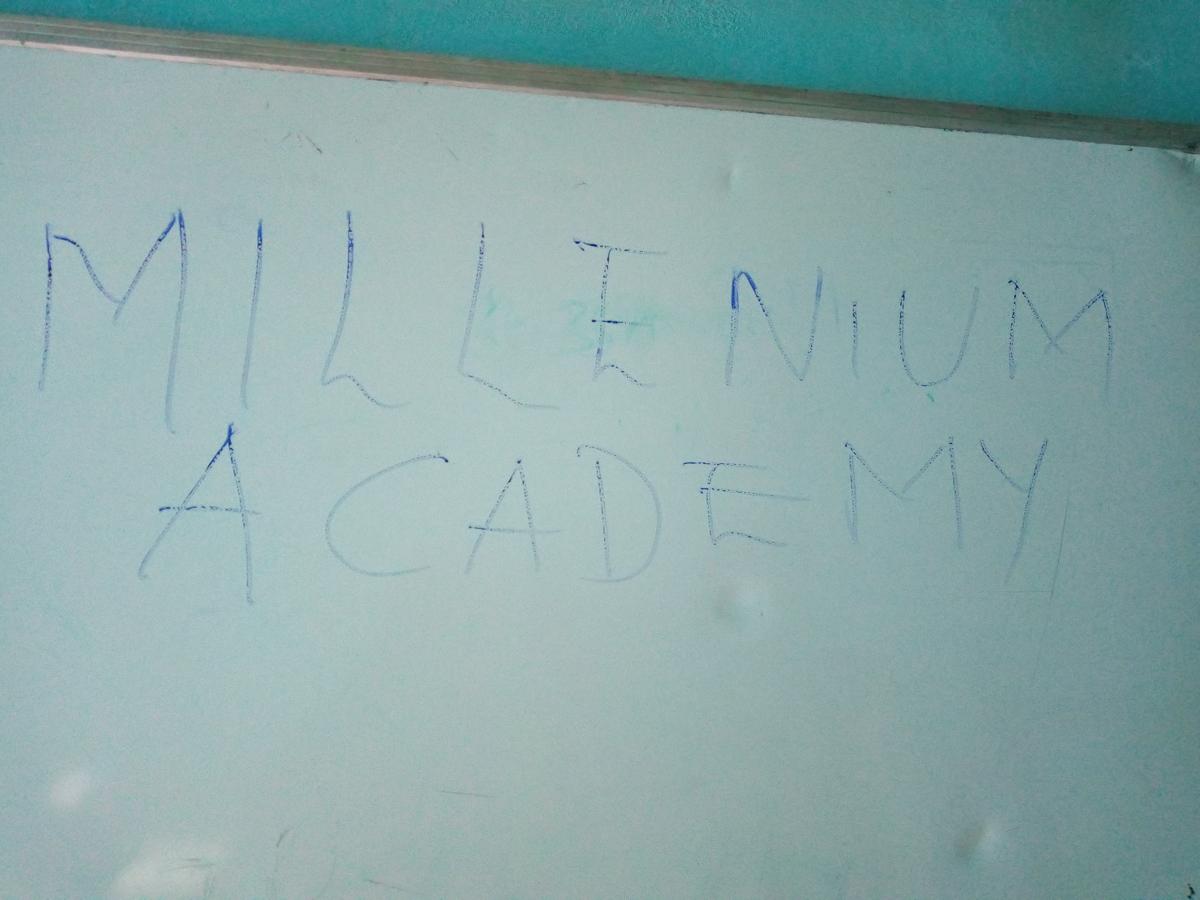 MILLENIUM
ACADEMY